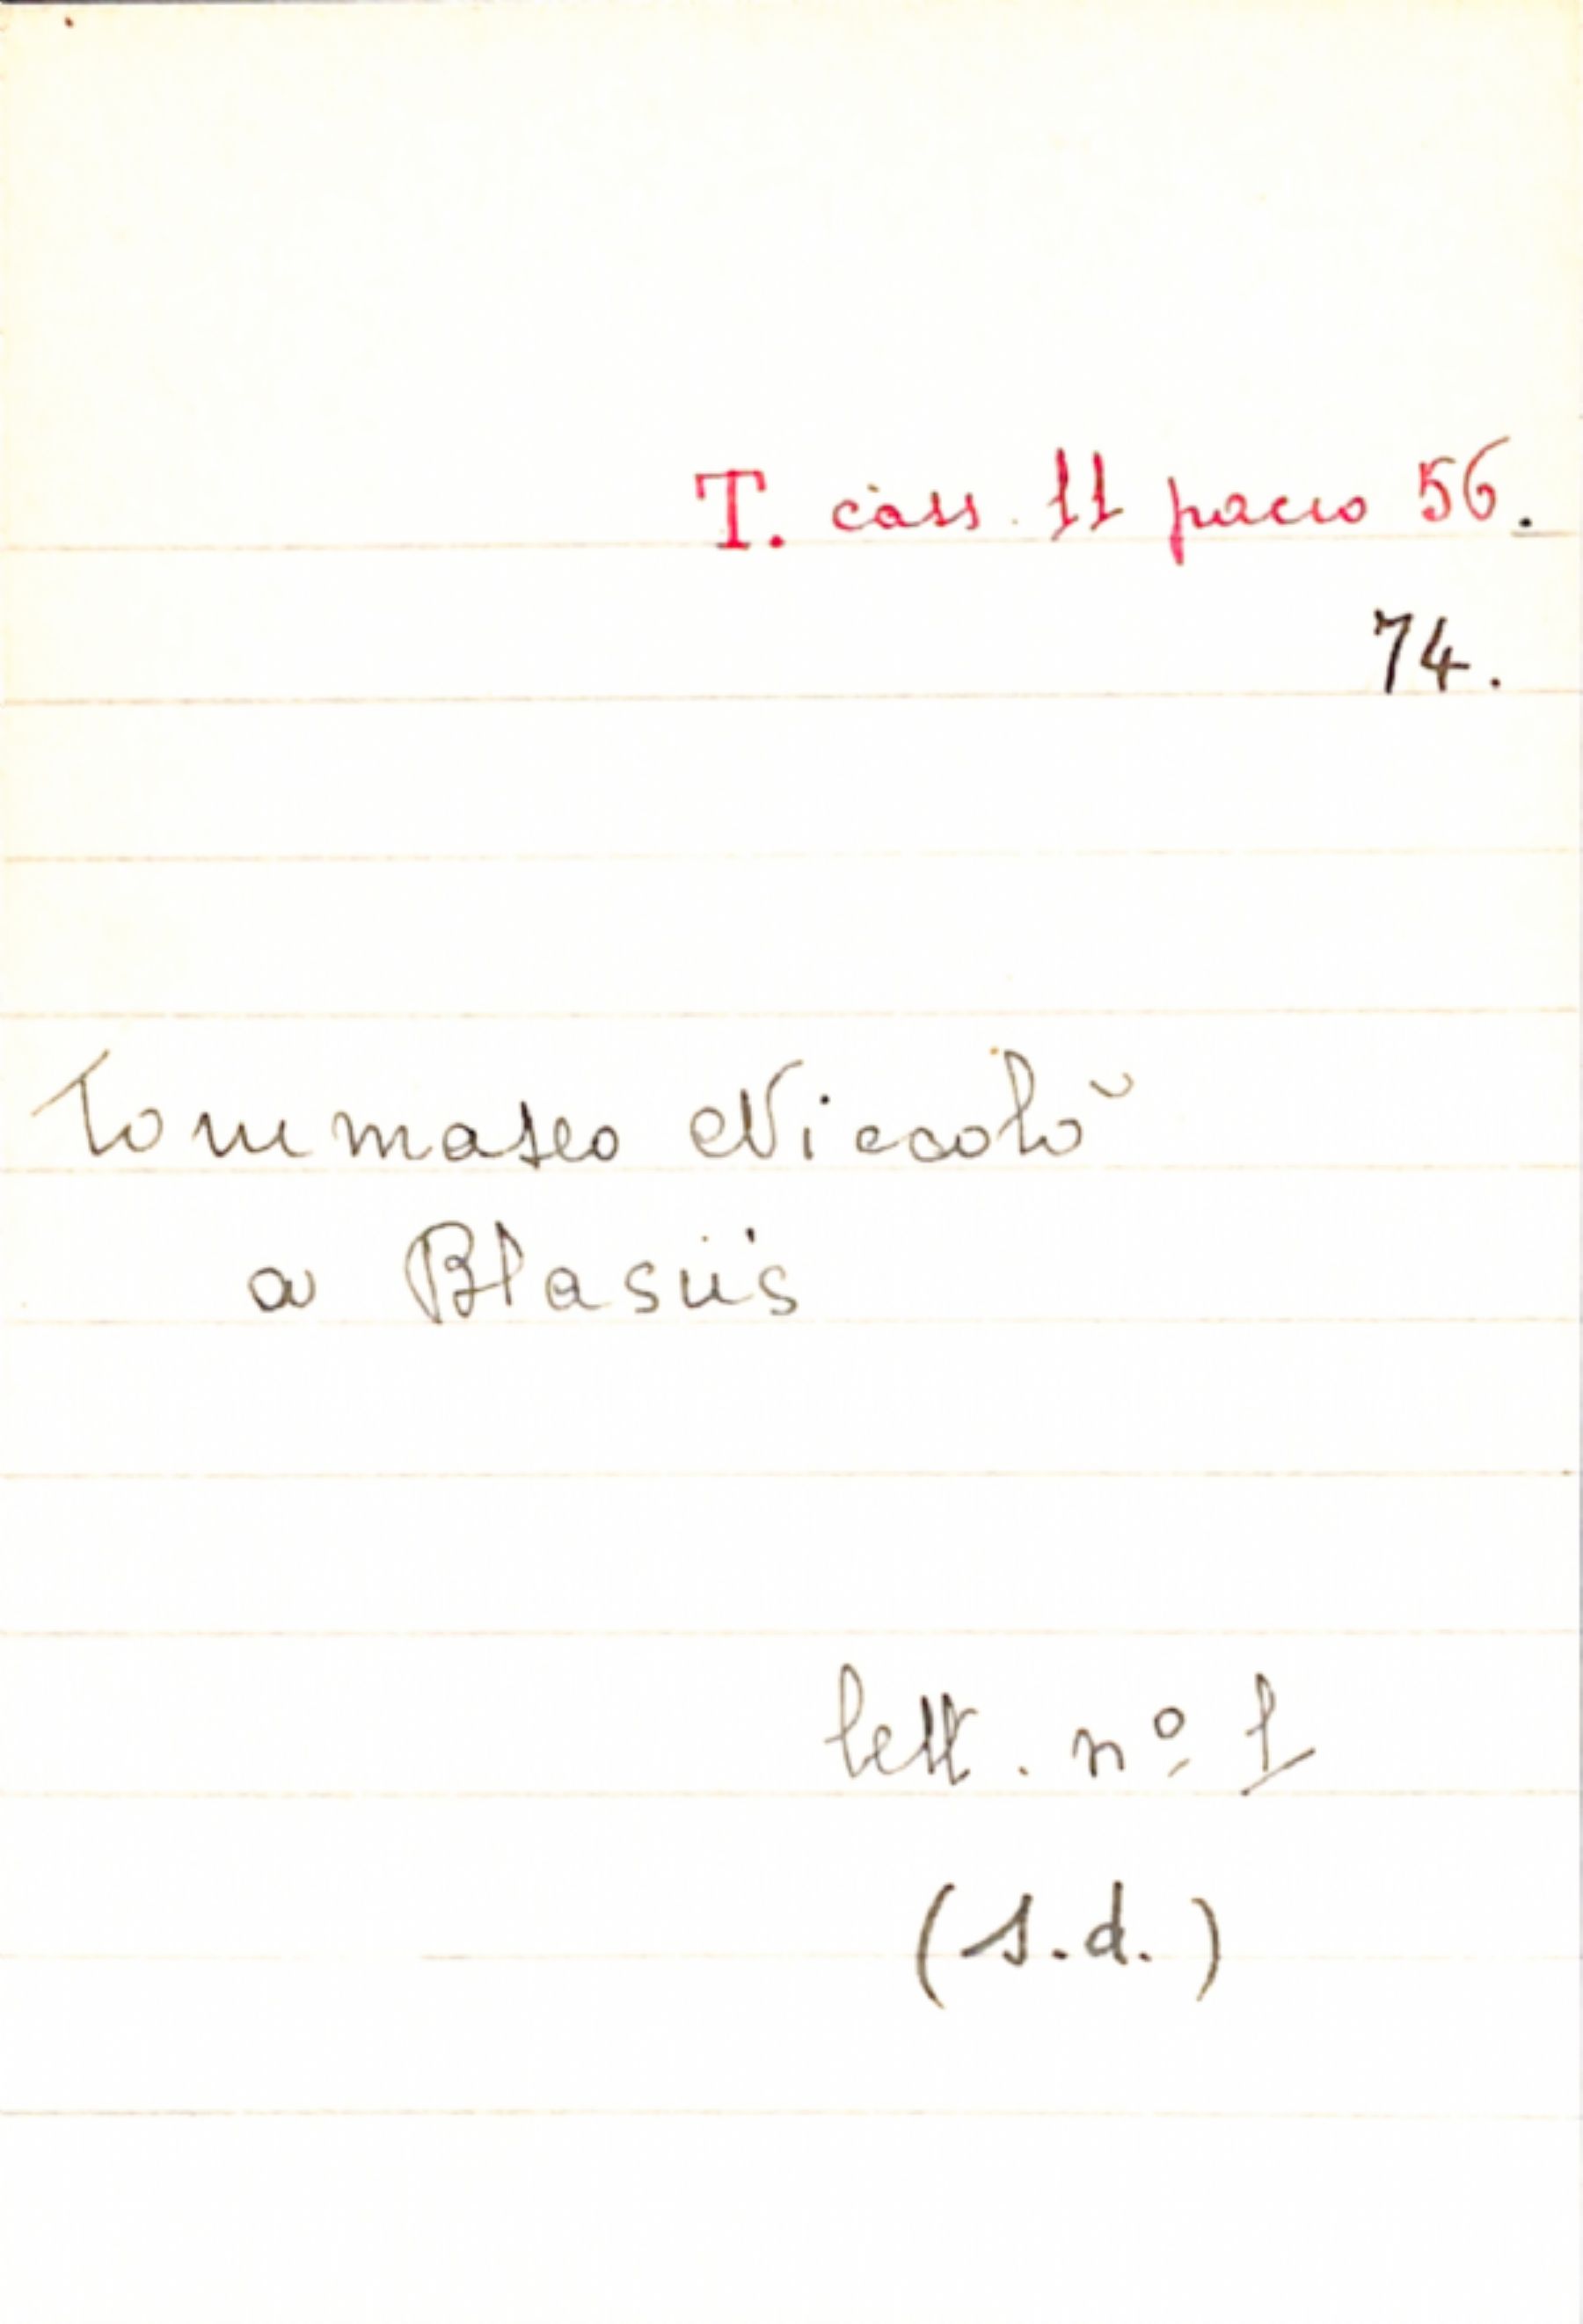 T. cass. 11 pacco 56.
74.
Tommaseo Niccolò
a Blasiis
lett. nº 1
(s.d.)